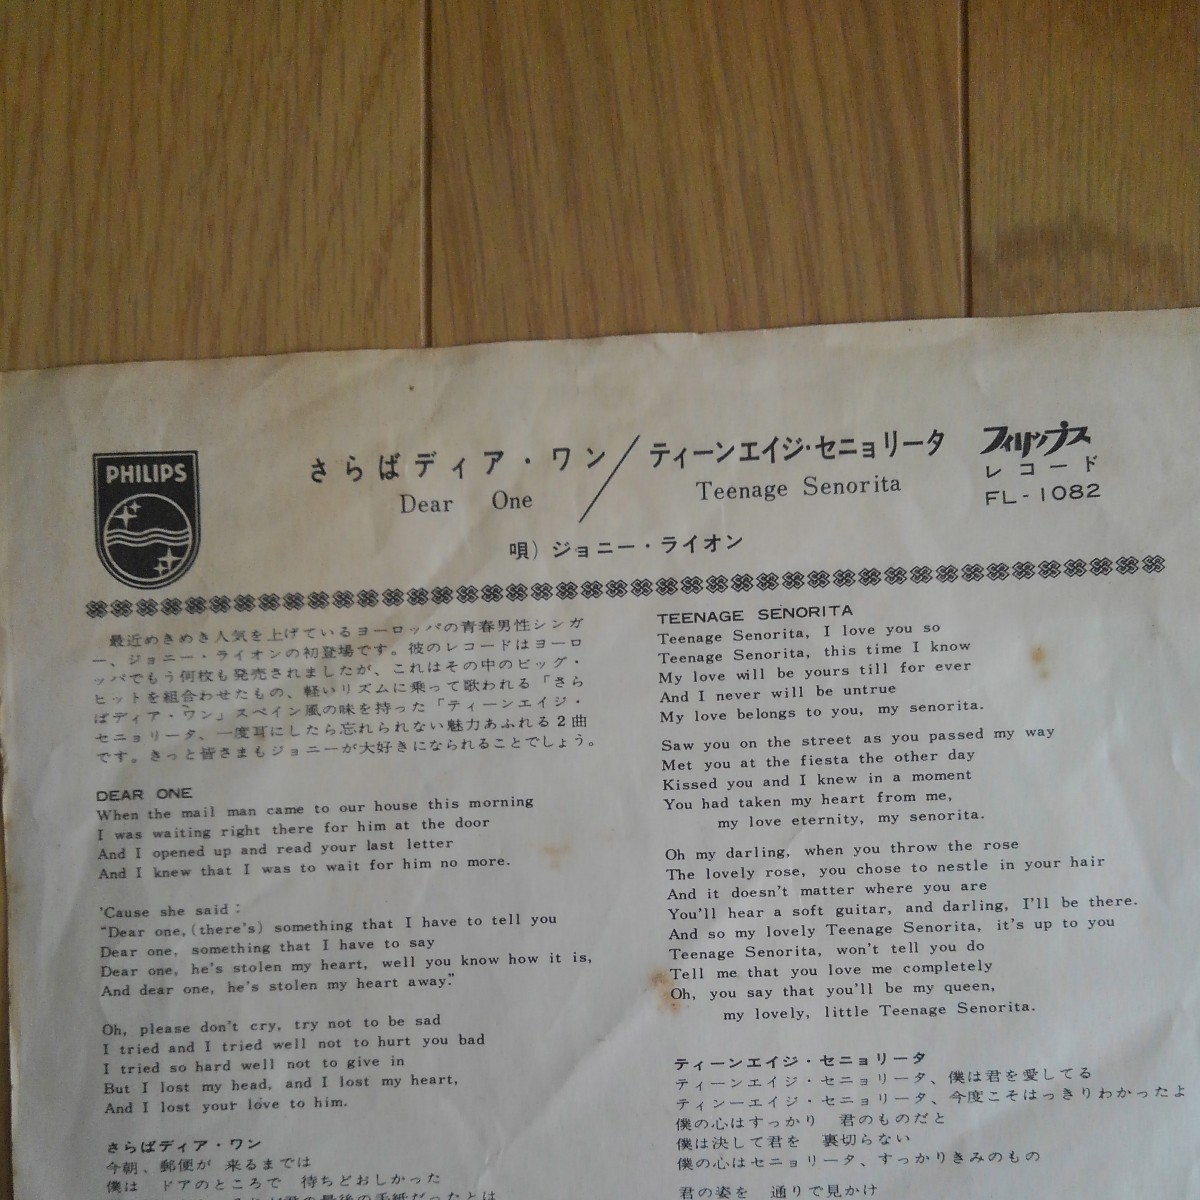 PHILIPS
さらばディア・ワン／ティーンエイジ・セニョリータ
Dear One
Teenage Senorita
フィリップス
レコード
FL-1082
唄）ジョニー・ライオン
最近めきめき人気を上げているヨーロッパの青春男性シンガ
ー、ジョニー・ライオンの初登場です。彼のレコードはヨーロ
ッパでもう何枚も発売されましたが、これはその中のビッグ・
ヒットを組合わせたもの、軽いリズムに乗って歌われる「さら
ばディア・ワン」スペイン風の味を持った「ティーンエイジ・
セニョリータ、一度耳にしたら忘れられない魅力あふれる２曲
です。きっと皆さまもジョニーが大好きになられることでしょう。
DEAR ONE
When the mail man came to our house this morning
I was waiting right there for him at the door
And I opened up and read your last letter
And I knew that I was to wait for him no more.
'Cause she said:
"Dear one, (there's) something that I have to tell you
Dear one, something that I have to say
Dear one, he's stolen my heart, well you know how it is,
And dear one, he's stolen my heart away."
Oh, please don't cry, try not to be sad
I tried and I tried well not to hurt you bad
I tried so hard well not to give in
But I lost my head, and I lost my heart,
And I lost your love to him.
さらばディア・ワン
今朝、郵便が 来るまでは
僕は ドアのところで 待ちどおしかった
君の最後の手紙だったとは
TEENAGE SEÑORITA
Teenage Senorita, I love you so
Teenage Senorita, this time I know
My love will be yours till for ever
And I never will be untrue
My love belongs to you, my senorita.
Saw you on the street as you passed my way
Met you at the fiesta the other day
Kissed you and I knew in a moment
You had taken my heart from me,
my love eternity, my senorita.
Oh my darling, when you throw the rose
The lovely rose, you chose to nestle in your hair
And it doesn't matter where you are
You'll hear a soft guitar, and darling, I'll be there.
And so my lovely Teenage Senorita, it's up to you
Teenage Senorita, won't tell you do
Tell me that you love me completely
Oh, you say that you'll be my queen,
my lovely, little Teenage Senorita.
ティーンエイジ・セニョリータ
ティーンエイジ・セニョリータ、僕は君を愛してる
ティンーエイジ・セニョリータ、今度こそはっきりわかったよ
僕の心はすっかり 君のものだと
僕は決して君を 裏切らない
僕の心はセニョリータ、すっかりきみのもの
君の姿を 通りで見かけ